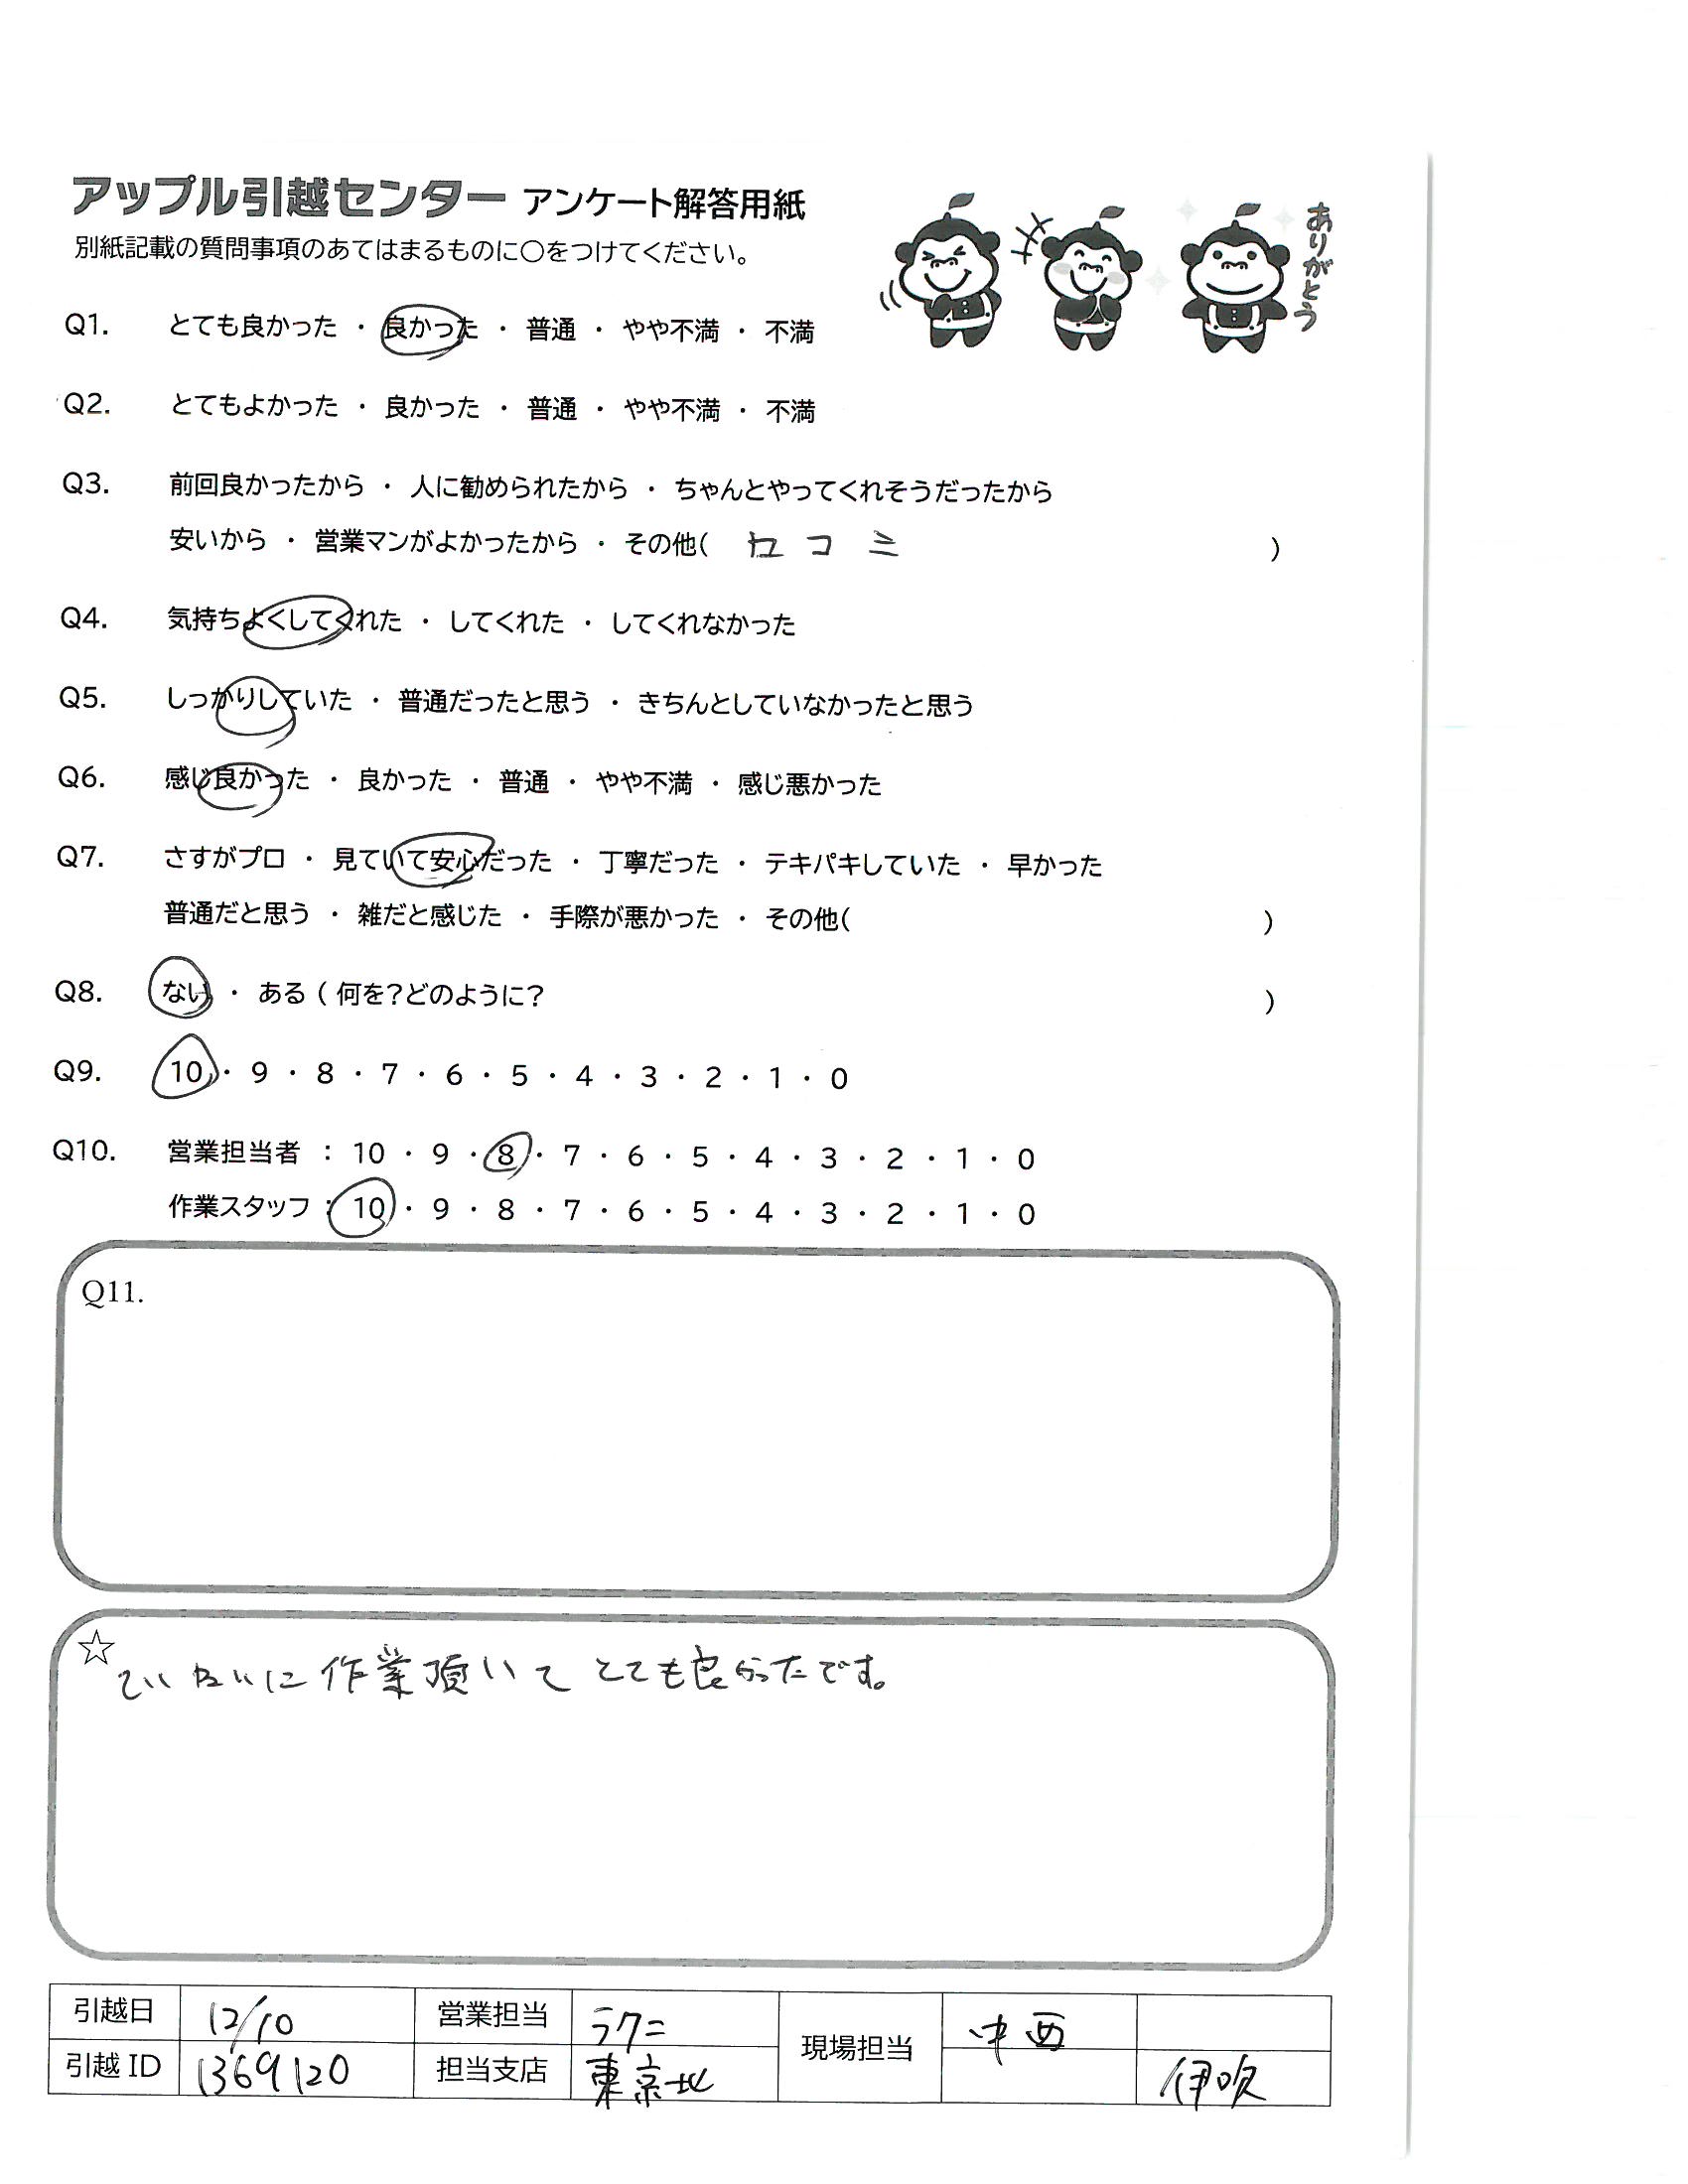 アップル引越センター アンケート解答用紙
別紙記載の質問事項のあてはまるものに〇をつけてください。
ありがとう
Q1. とても良かった ・ 良かった ・ 普通 ・ やや不満 ・ 不満
Q2. とてもよかった ・ 良かった ・ 普通 ・ やや不満 ・ 不満
Q3. 前回良かったから ・ 人に勧められたから ・ ちゃんとやってくれそうだったから
安いから ・ 営業マンがよかったから ・ その他( 口コミ )
Q4. 気持ちよくしてくれた ・ してくれた ・ してくれなかった
Q5. しっかりしていた ・ 普通だったと思う ・ きちんとしていなかったと思う
Q6. 感じ良かった ・ 良かった ・ 普通 ・ やや不満 ・ 感じ悪かった
Q7. さすがプロ ・ 見ていて安心だった ・ 丁寧だった ・ テキパキしていた ・ 早かった
普通だと思う ・ 雑だと感じた ・ 手際が悪かった ・ その他( )
Q8. ない ・ ある ( 何を?どのように? )
Q9. 10 ・ 9 ・ 8 ・ 7 ・ 6 ・ 5 ・ 4 ・ 3 ・ 2 ・ 1 ・ 0
Q10. 営業担当者 : 10 ・ 9 ・ 8 ・ 7 ・ 6 ・ 5 ・ 4 ・ 3 ・ 2 ・ 1 ・ 0
作業スタッフ : 10 ・ 9 ・ 8 ・ 7 ・ 6 ・ 5 ・ 4 ・ 3 ・ 2 ・ 1 ・ 0
Q11.
☆ ていねいに作業頂いてとても良かったです。
引越日 12/10 営業担当 ラクニ 現場担当 中西
引越 ID 1369120 担当支店 東京北 伊吹